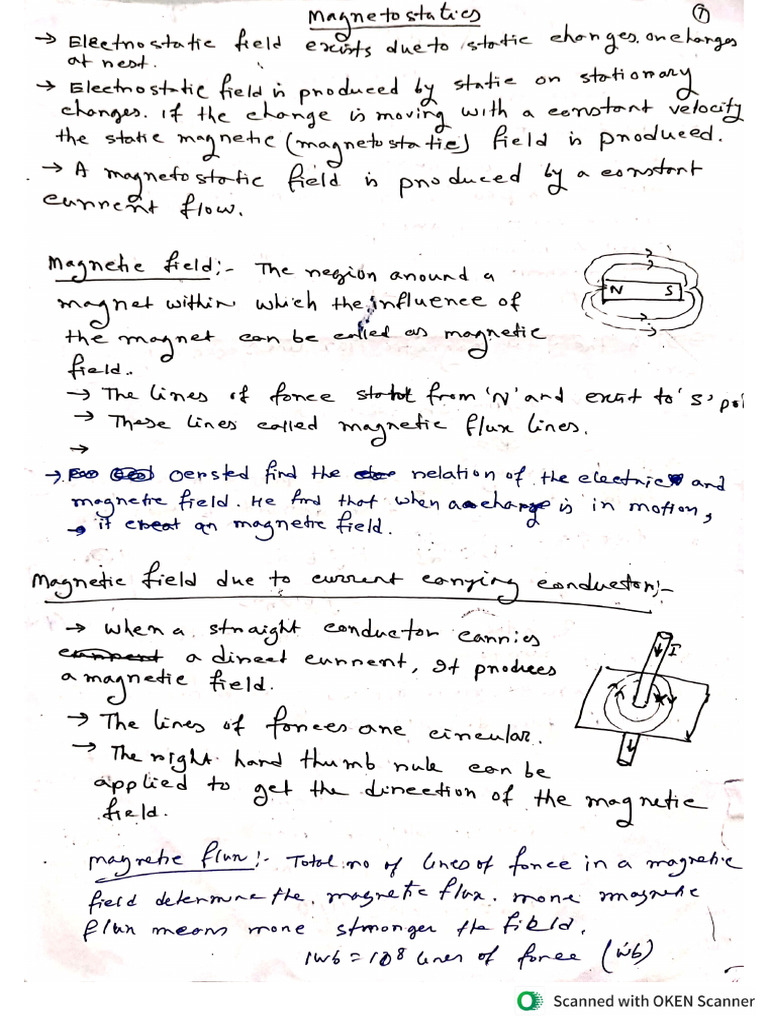 Magnetostatics
1
→ Electrostatic field exists due to static charges. or charges
at rest.
→ Electrostatic field is produced by static or stationary
charges. if the charge is moving with a constant velocity
the static magnetic (magnetostatic) field is produced.
→ A magnetostatic field is produced by a constant
current flow.
Magnetic field:- The region around a
magnet within which the influence of
the magnet can be called as magnetic
field..
N S
→ The lines of force start from 'N' and exist to 'S' pol
→ These lines called magnetic flux lines.
→
→ oersted find the relation of the electric and
magnetic field. He find that when a charge is in motion,
→ it creat an magnetic field.
Magnetic field due to current carrying conductor:-
→ when a straight conductor carries
a direct current, It produces
a magnetic field.
I
→ The lines of forces are circular.
→ The right hand thumb rule can be
applied to get the direction of the magnetic
field.
magnetic flux:- Total no of lines of force in a magnetic
field determine the magnetic flux. more magnetic
flux means more stronger the field.
1wb = 10⁸ lines of force (wb)
Scanned with OKEN Scanner